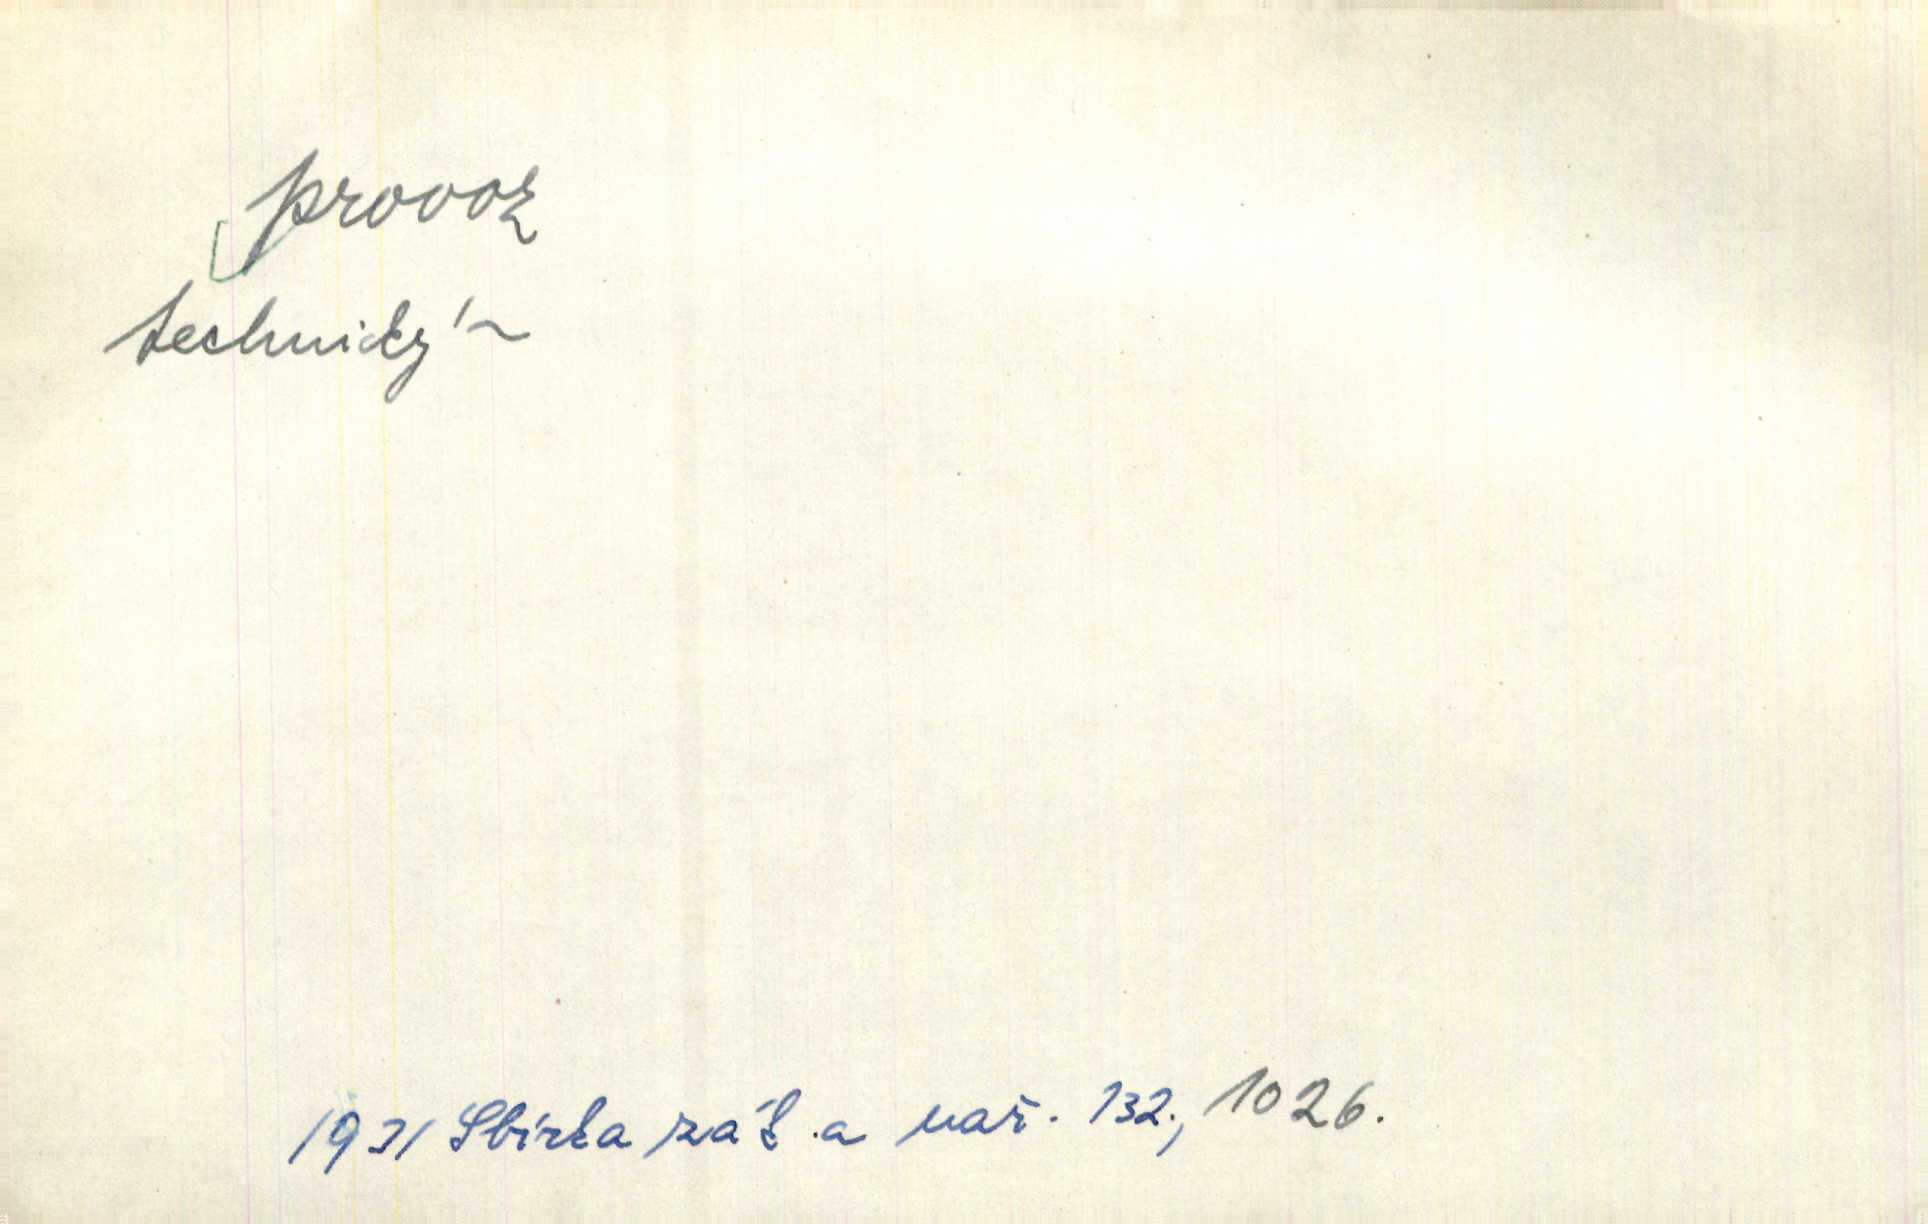 provoz
technický ~
1931 Sbírka zák. a nař. 132., 1026.